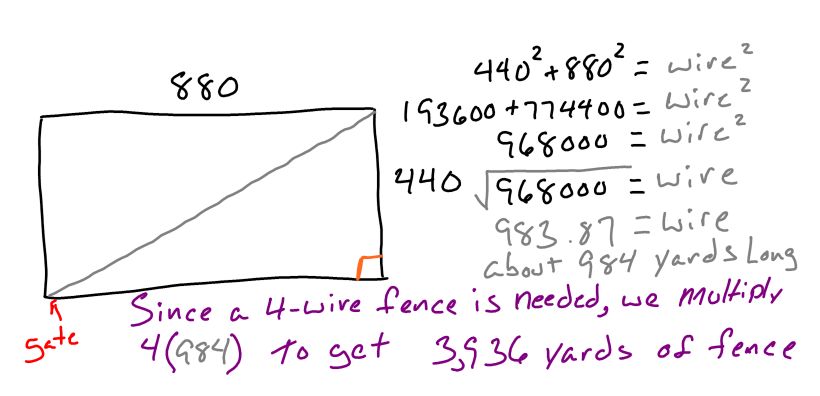 880
440² + 880² = wire²
193600 + 774400 = wire²
968000 = wire²
440
√968000 = wire
983.87 = wire
about 984 yards Long
gate
Since a 4-wire fence is needed, we multiply
4(984) to get 3,936 yards of fence